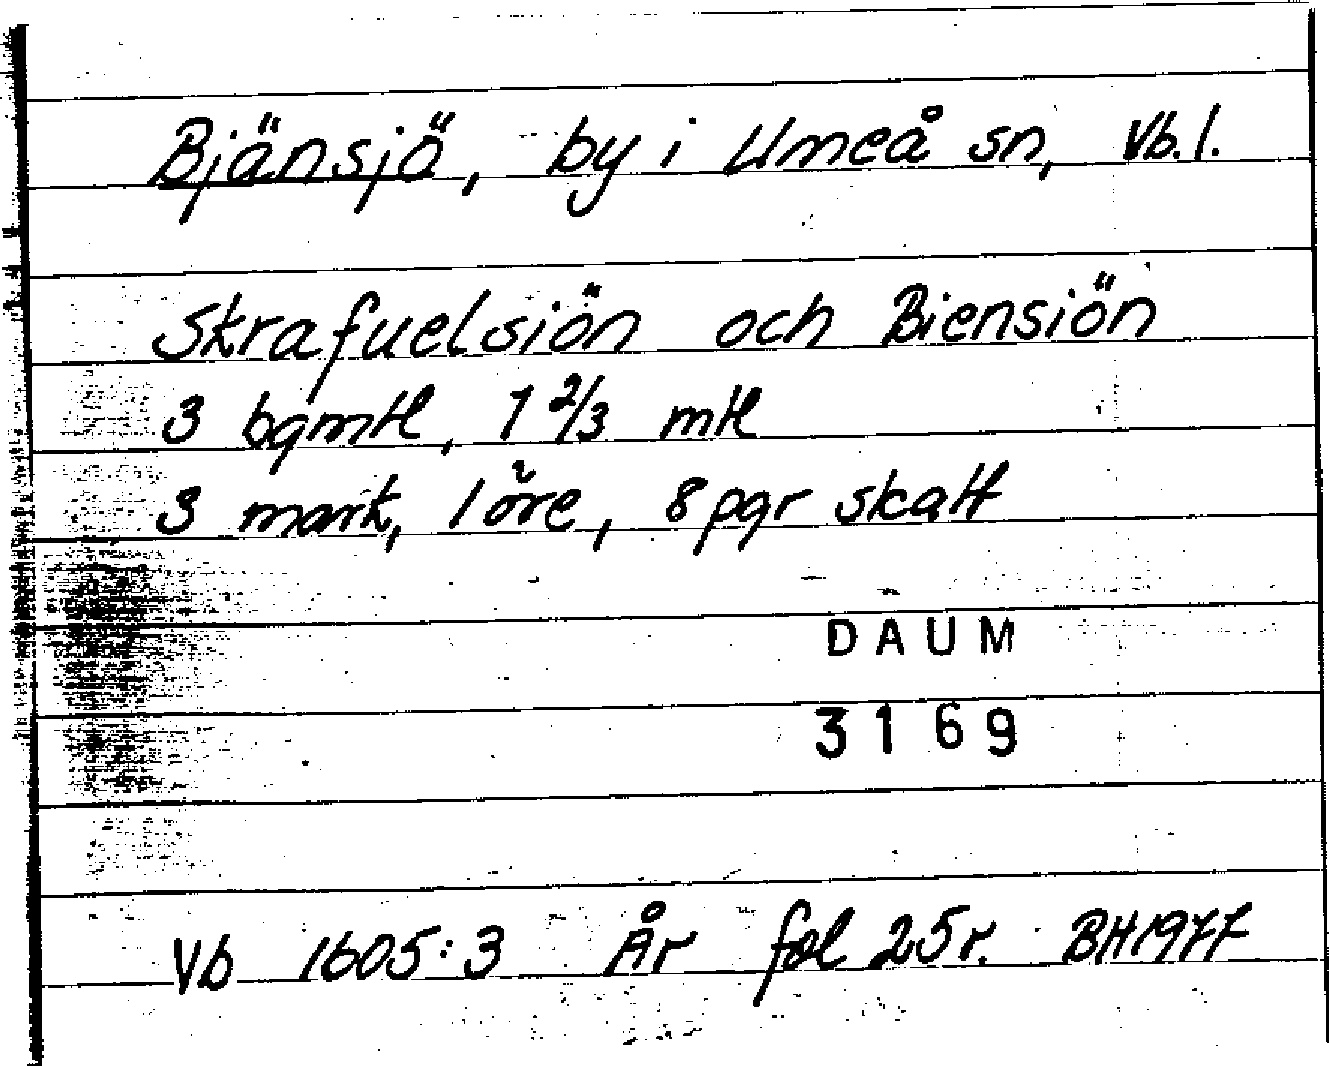 Bjänsjö, by i Umeå sn, Vb. l.
Skrafuelsiön och Biensiön
3 bgmtl, 1 2/3 mtl
3 mark, 1 öre, 8 pgr skatt
DAUM
3169
Vb 1605:3 År fol 25r. BH1977